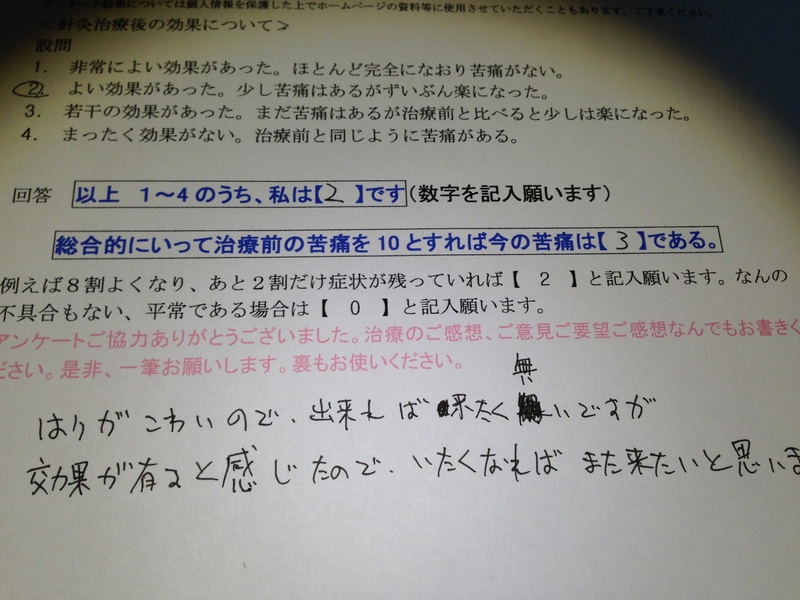 アンケート結果については個人情報を保護した上でホームページの資料等に使用させていただくこともあります。ご了承ください。
＜針灸治療後の効果について＞
設問
1. 非常によい効果があった。ほとんど完全になおり苦痛がない。
2. よい効果があった。少し苦痛はあるがずいぶん楽になった。
3. 若干の効果があった。まだ苦痛はあるが治療前と比べると少しは楽になった。
4. まったく効果がない。治療前と同じように苦痛がある。
回答 以上 1～4のうち、私は【2】です(数字を記入願います)
総合的にいって治療前の苦痛を10とすれば今の苦痛は【3】である。
例えば８割よくなり、あと２割だけ症状が残っていれば【 2 】と記入願います。なんの
不具合もない、平常である場合は【 0 】と記入願います。
アンケートご協力ありがとうございました。治療のご感想、ご意見ご要望ご感想なんでもお書きく
ださい。是非、一筆お願いします。裏もお使いください。
はりがこわいので、出来れば来たく無いですが
効果が有ると感じたので、いたくなればまた来たいと思いま